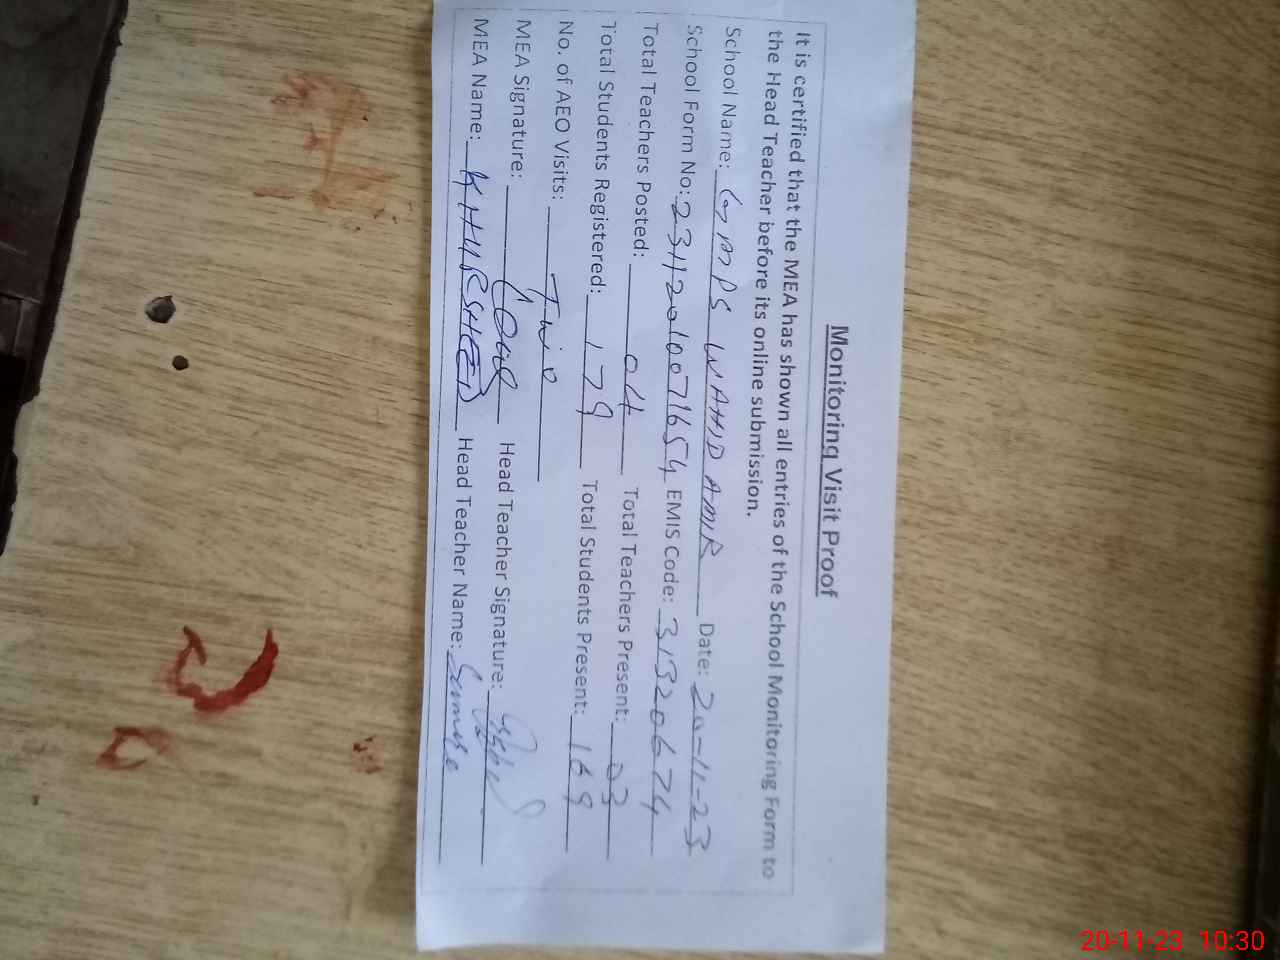 Monitoring Visit Proof
It is certified that the MEA has shown all entries of the School Monitoring Form to
the Head Teacher before its online submission.
School Name: GMPS WAHID AMIR Date: 20-11-23
School Form No: 23112010071654 EMIS Code: 31320674
Total Teachers Posted: 04 Total Teachers Present: 03
Total Students Registered: 179 Total Students Present: 169
No. of AEO Visits: Two
MEA Signature: Head Teacher Signature:
MEA Name: KHURSHEED Head Teacher Name:
20-11-23 10:30